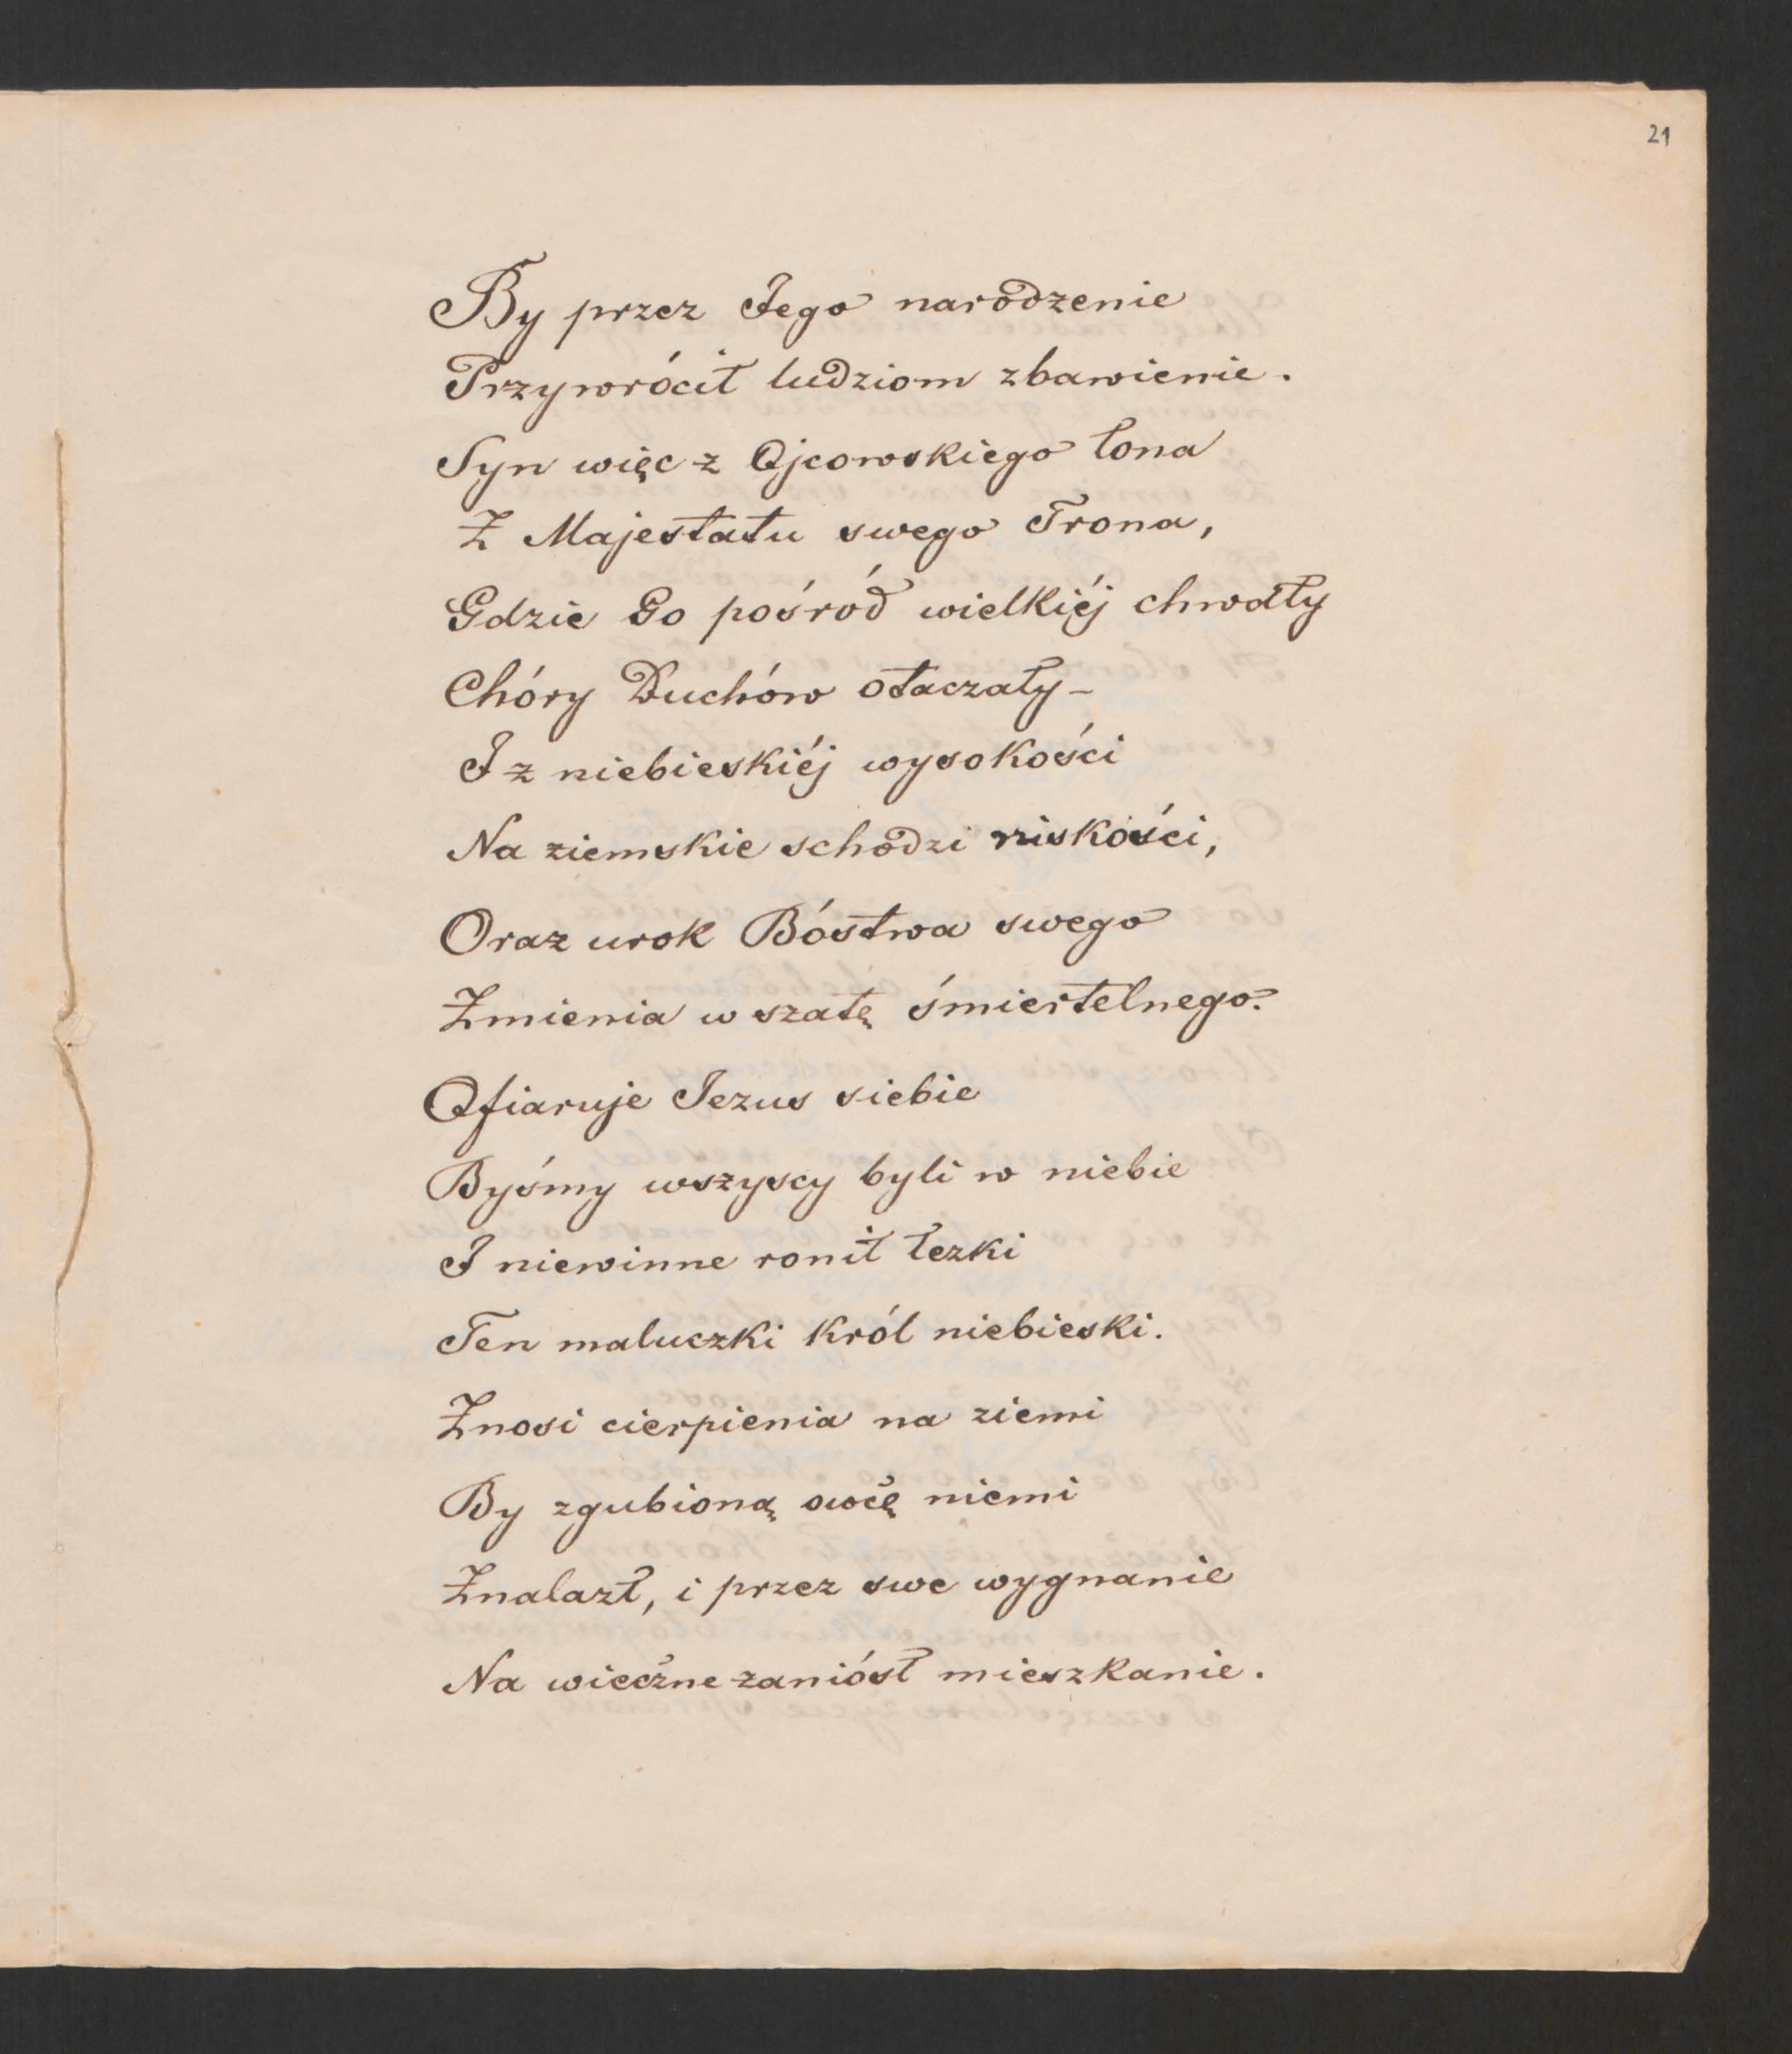 21
By przez Jego narodzenie
Przywrócił ludziom zbawienie.
Syn więc z Ojcowskiego łona
Z Majestatu swego Trona,
Gdzie Go pośród wielkiéj chwały
Chóry Duchów otaczały –
I z niebieskiéj wysokości
Na ziemskie schodzi niskości,
Oraz urok Bóstwa swego
Zmienia w szatę śmiertelnego.
Ofiaruje Jezus siebie
Byśmy wszyscy byli w niebie
I niewinne ronił łezki
Ten maluczki król niebieski.
Znosi cierpienia na ziemi
By zgubioną owcę niemi
Znalazł, i przez swe wygnanie
Na wieczne zaniósł mieszkanie.